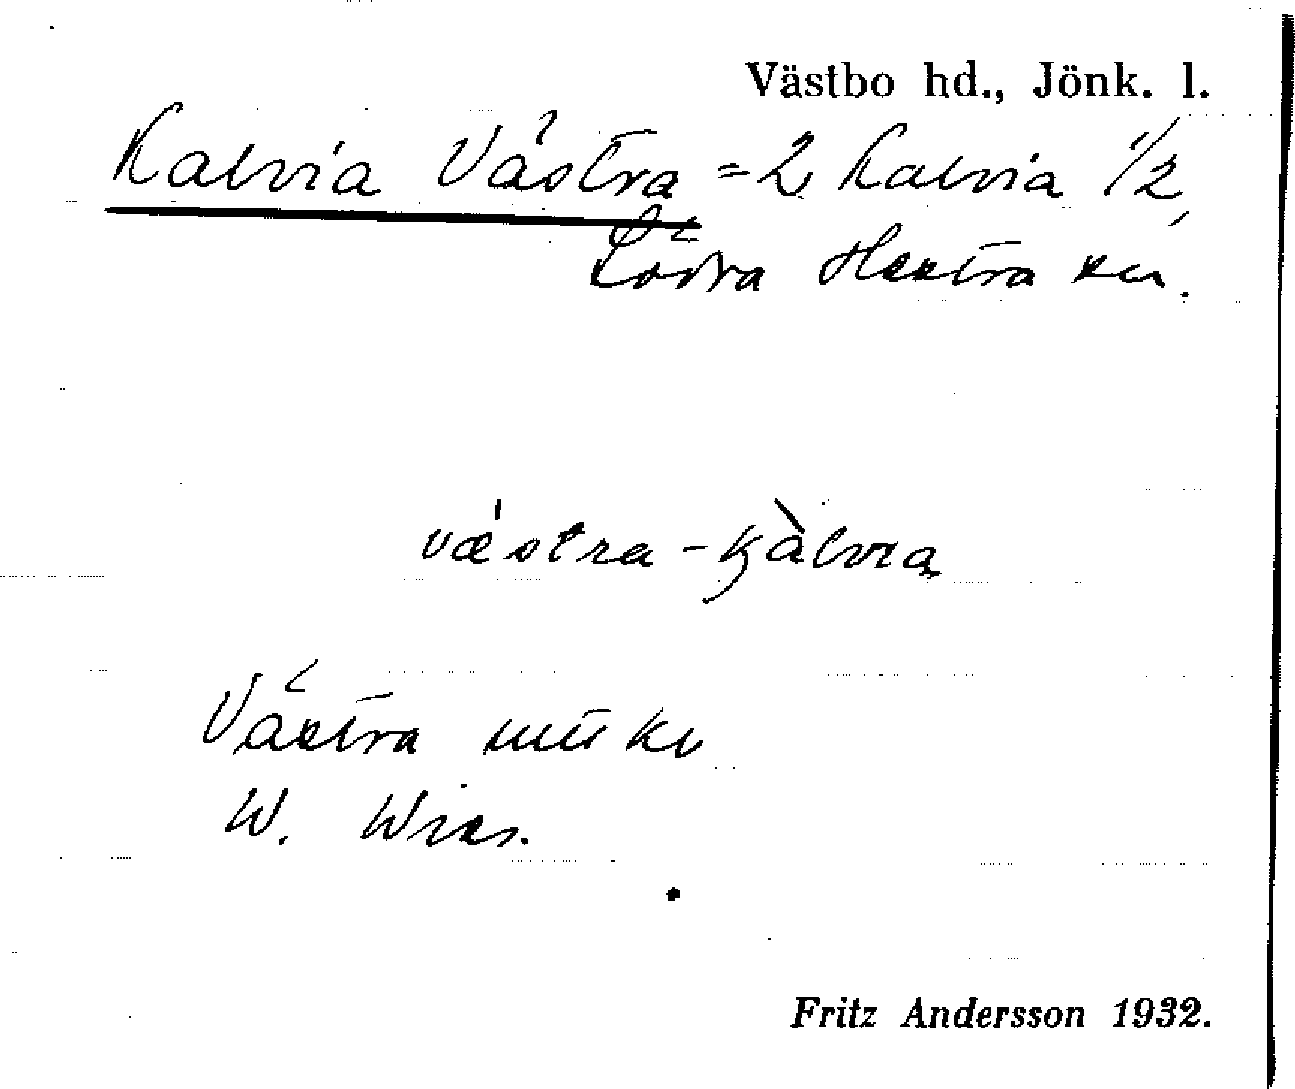 Västbo hd., Jönk. l.
Kalvia Västra = 2 Kalvia 1/2,
Södra Hestra sn.
västra-kàlvia
Västra
W.
Fritz Andersson 1932.